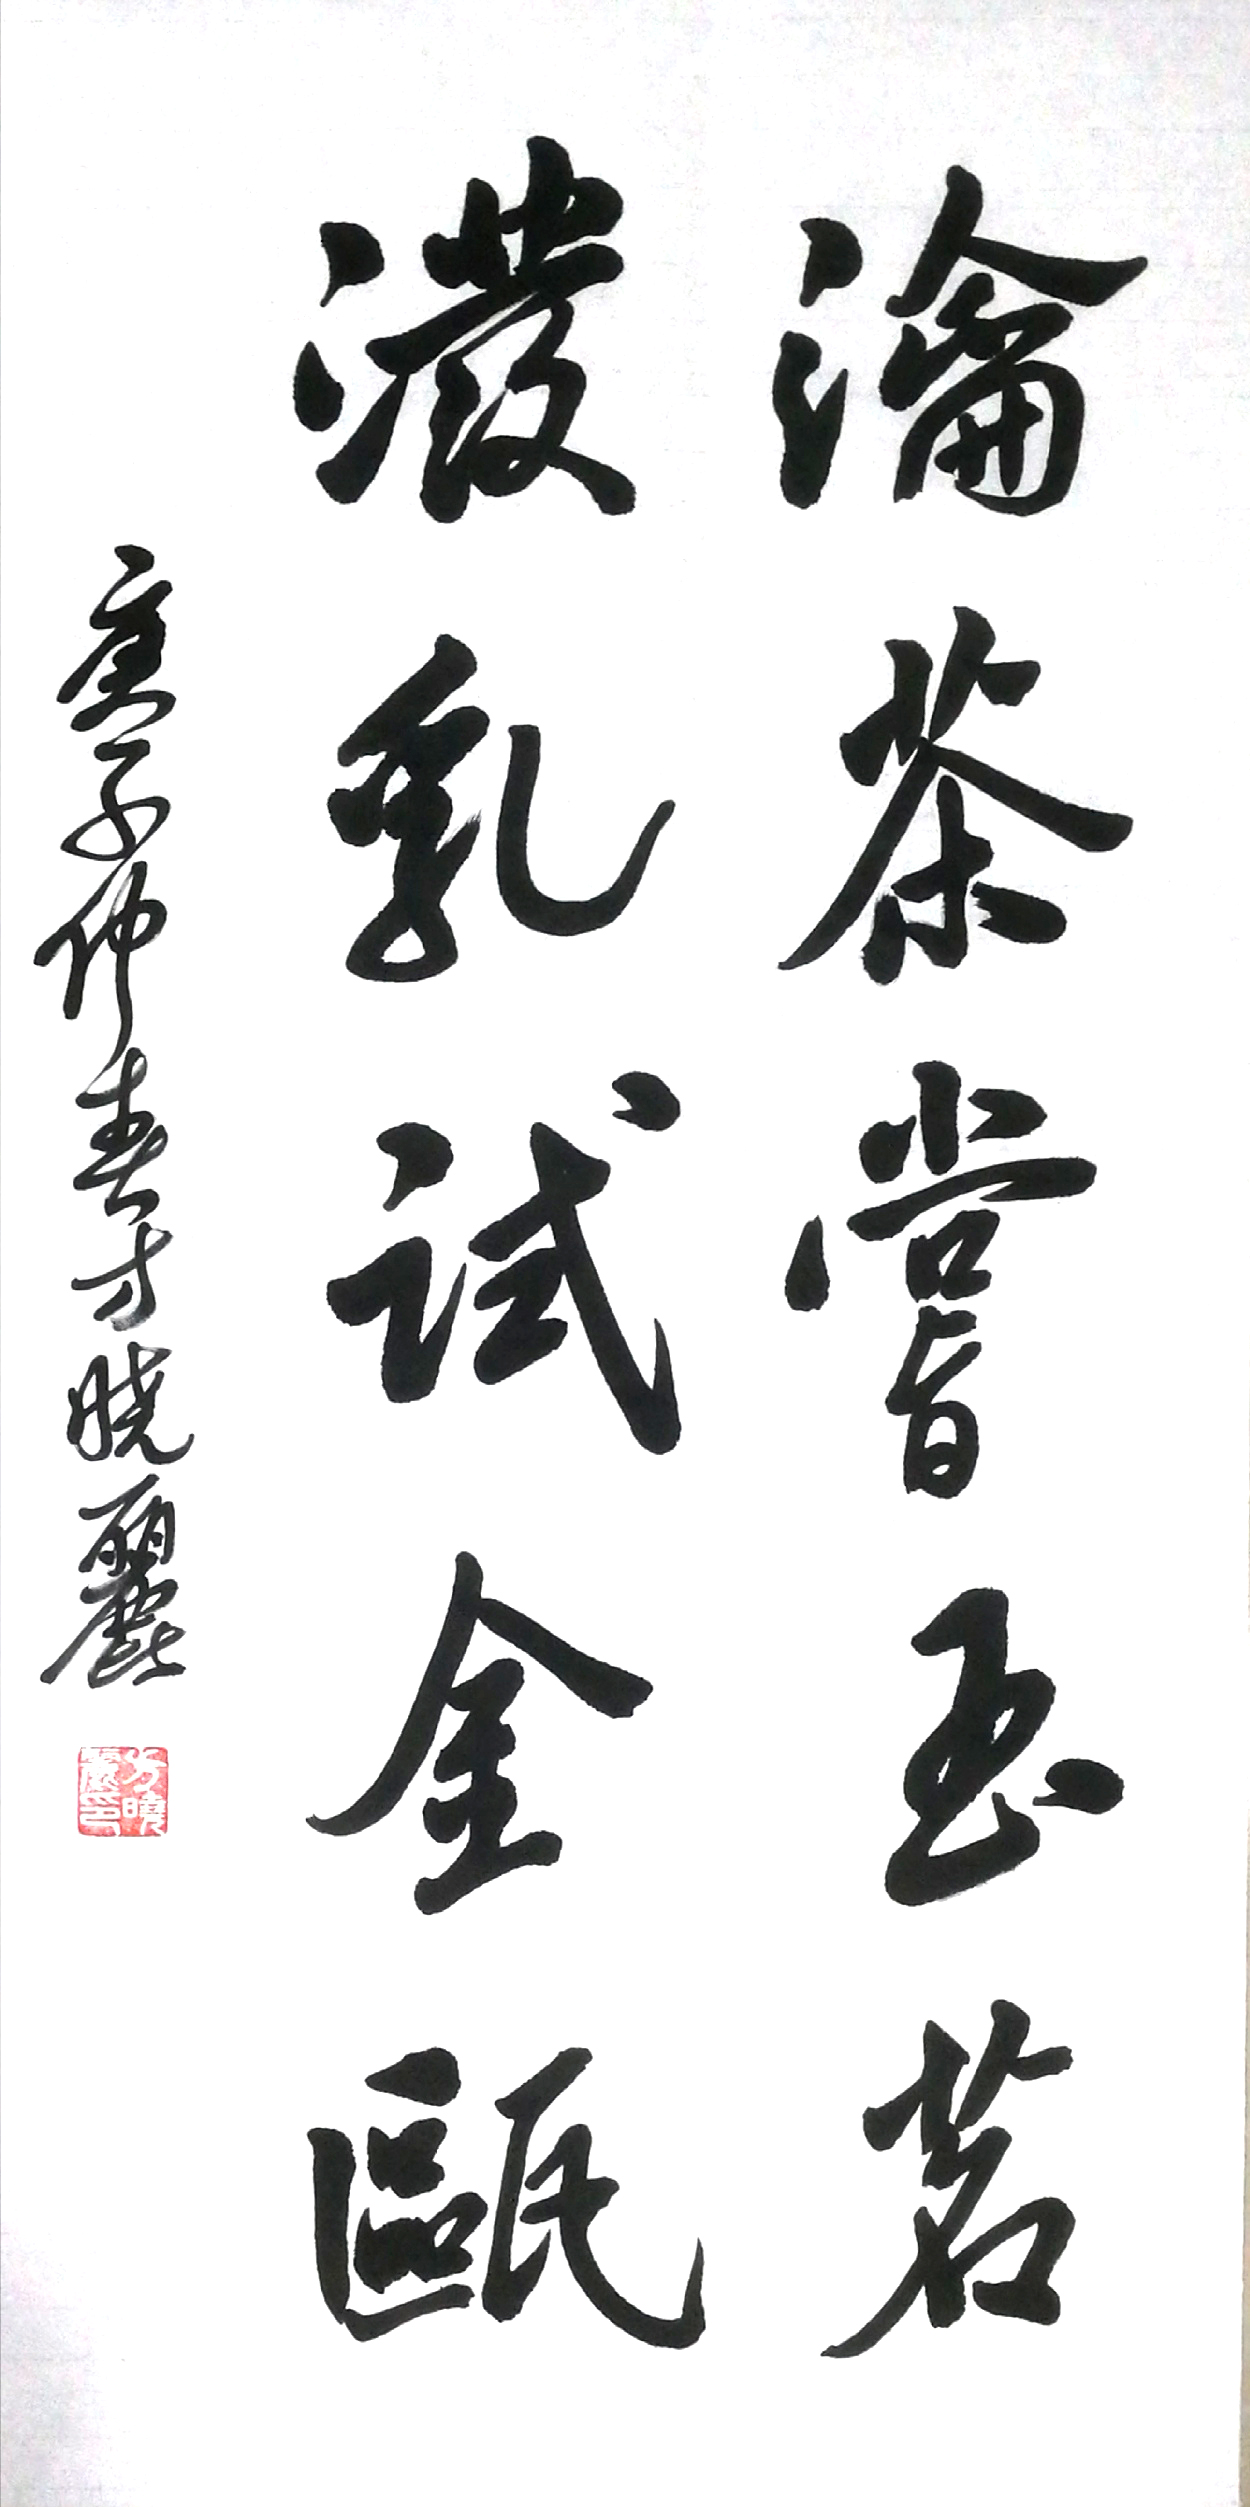 瀹茶嘗玉茗
潑乳試金甌
庚子仲春方曉麗
方曉麗印